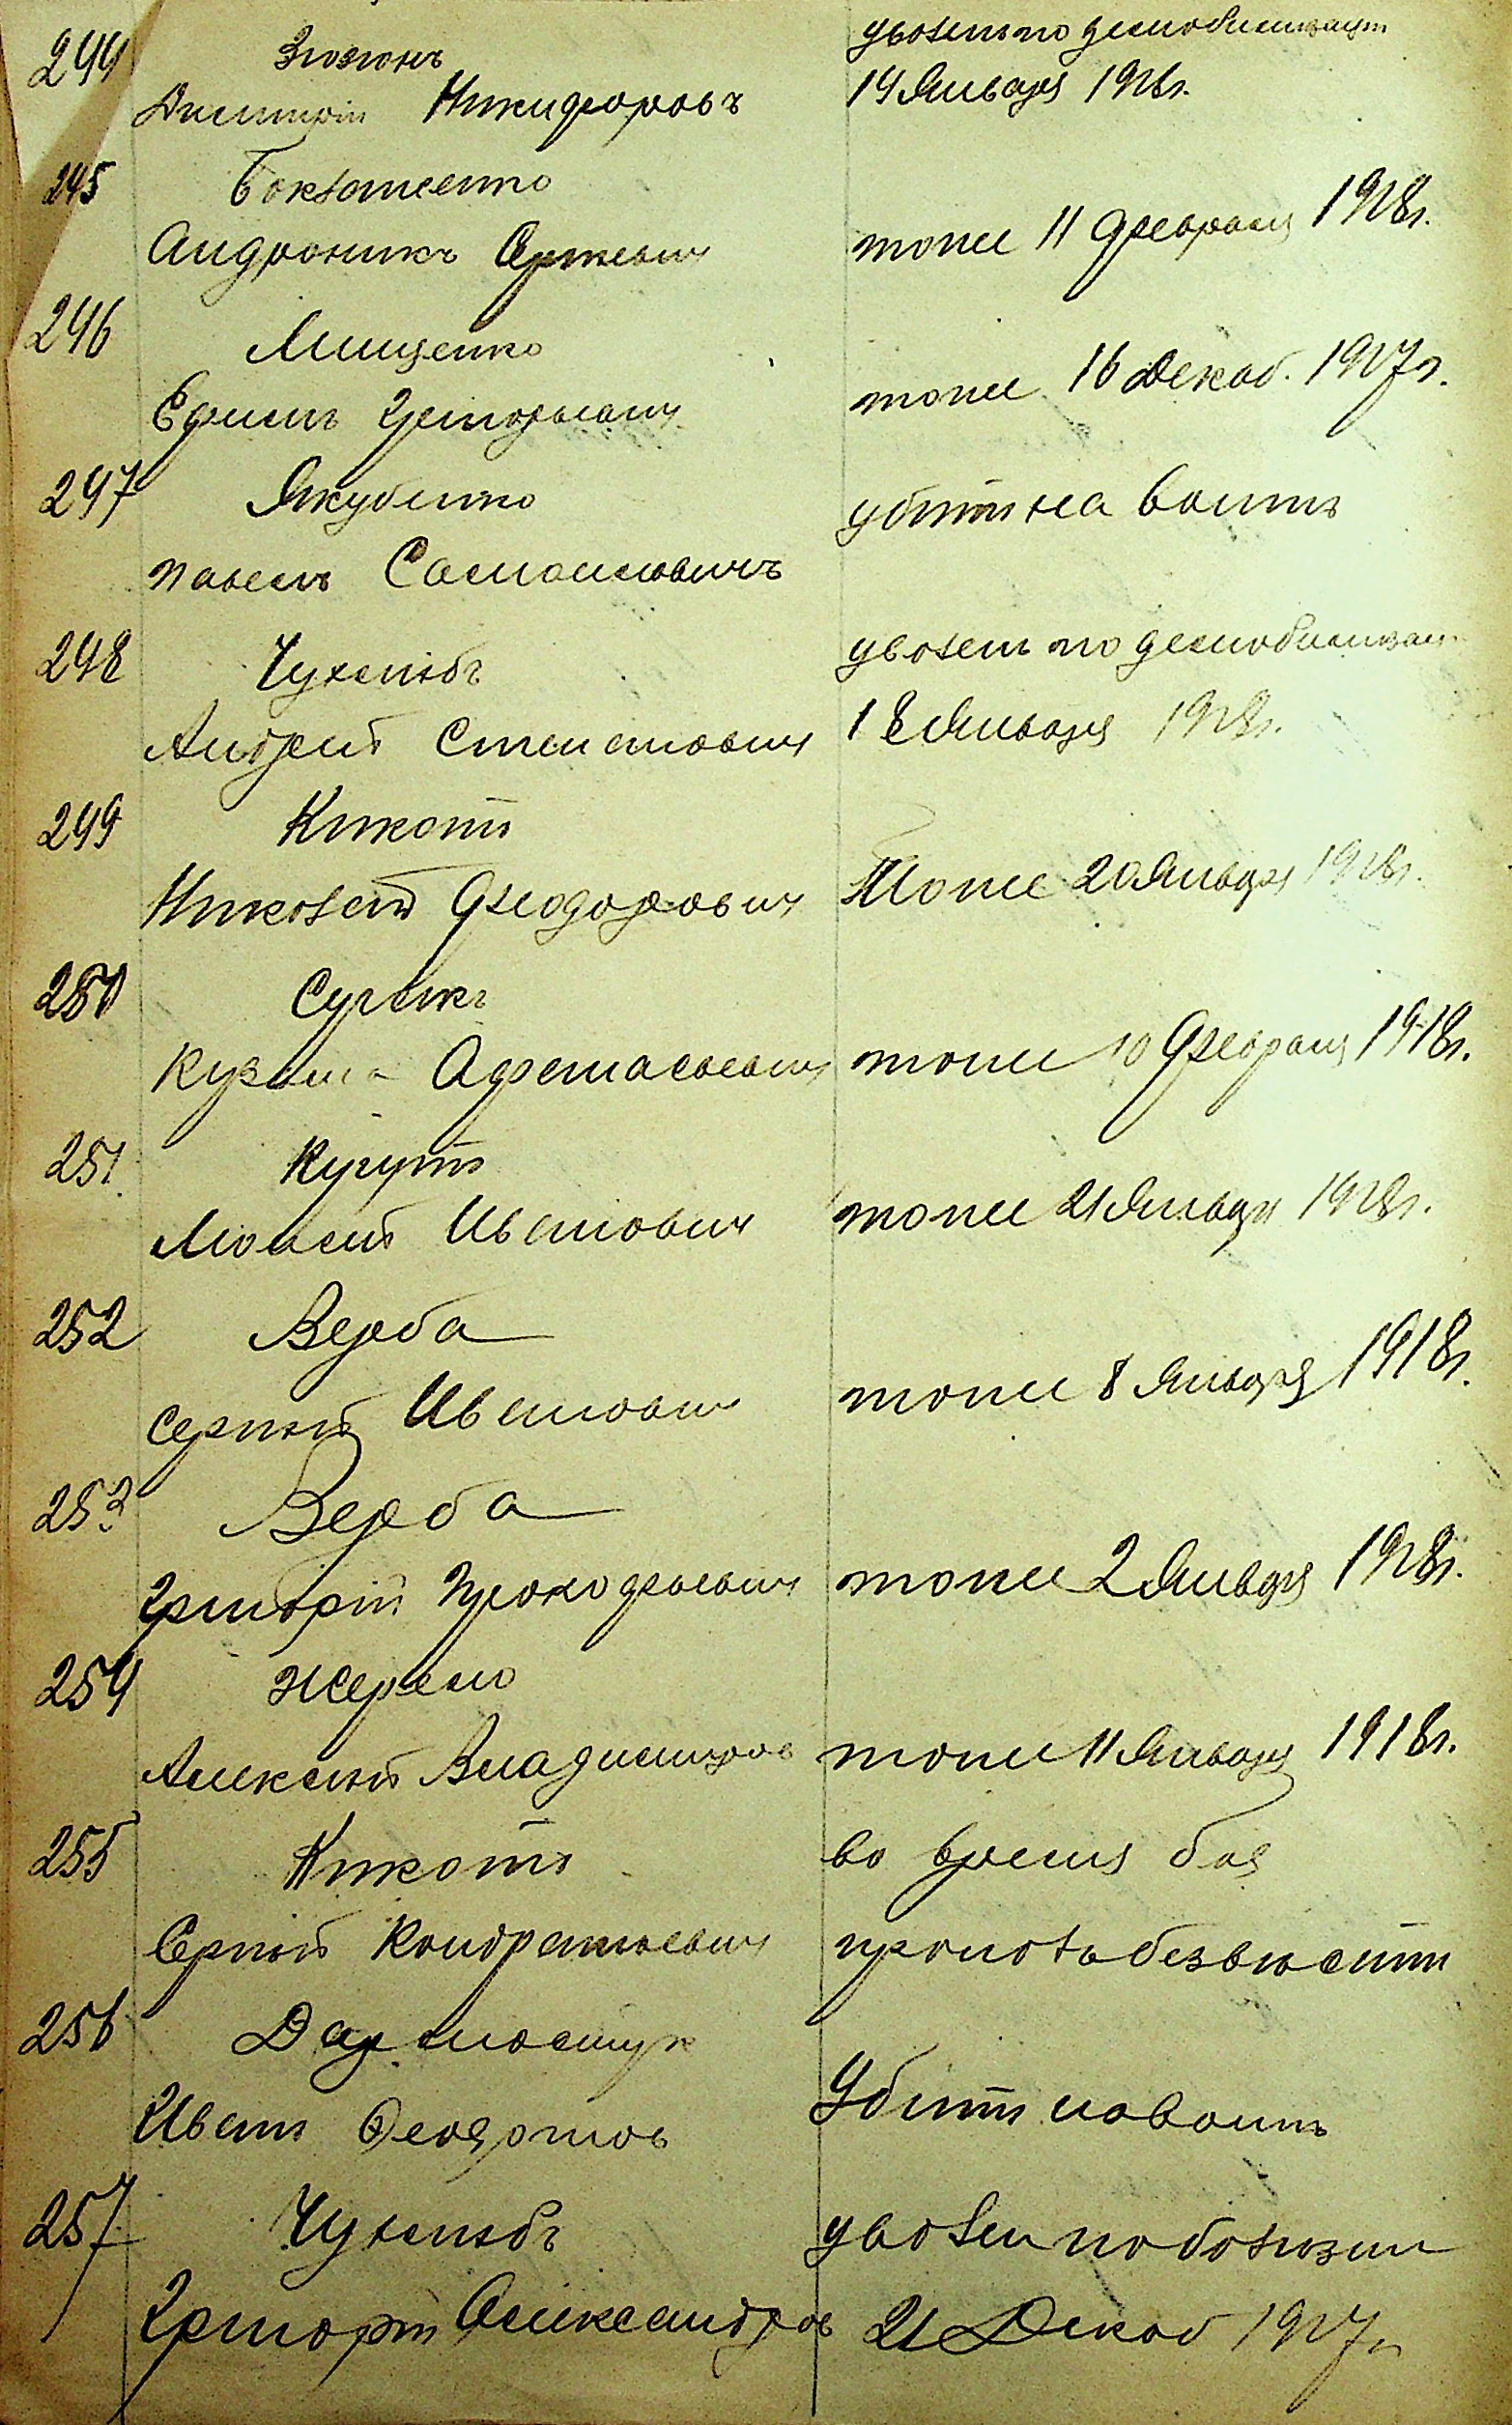 244 Зюзюнъ уволенъ по демобилизаціи
Дмитрій Никифоровъ 14 Января 1918г.
245
Андроникъ Сергѣевич тоже 11 Февраля 1918г.
246 Мищенко
Ефимъ Григорьевич тоже 16 Декаб. 1917г.
247 Якубенко убитъ на войнѣ
Павелъ Самойловичъ
248 Чухлѣбъ уволенъ по демобилизац
Андрей Степановичъ 18 Января 1918г.
249 Кикоть
Николай Феодорович Тоже 20 Января 1918г.
250
Кузьма Афанасьевич тоже 10 Февраля 1918г.
251 Кугутъ
Моисей Иванович тоже 21 Января 1918г.
252 Верба
Сергѣй Иванович тоже 8 Января 1918г.
253 Верба
Григорій Прокофьевич тоже 2 Января 1918г.
254
Алексѣй Владимиров тоже 11 Января 1918г.
255 Кикоть во время боя
Сергѣй Кондратьевич пропалъ безвѣсти
256 Дармостук
Иванъ Федотов Убитъ на войнѣ
257 Чухлѣбъ уволен по болѣзни
Григорій Александров 21 Декаб 1917г